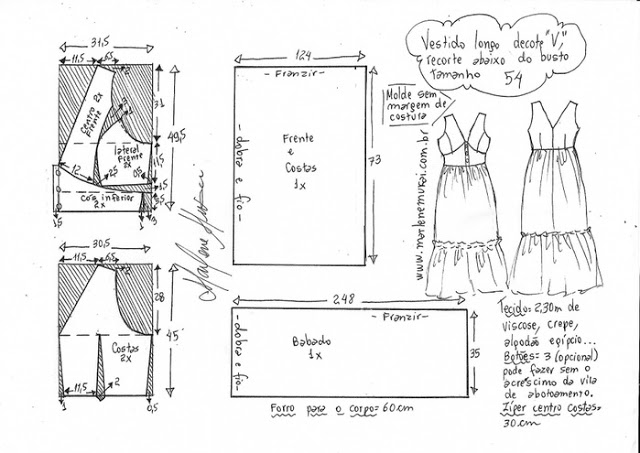 Vestido longo decote "V",
recorte abaixo do busto
Tamanho 54
Molde sem
margem de
costura
www.marlenemukai.com.br
31,5
11,5
6,5
2
31
49,5
Centro
Frente 2x
lateral
Frente
2x
11,5
12
2,5
3,5
Cós inferior
2x
1,5
1
3
124
- Franzir -
Frente
e
Costas
1x
- dobra e fio -
73
30,5
11,5
6,5
2
28
45
Costas
2x
11,5
2
1
0,5
248
- Franzir -
Babado
1x
- dobra e fio -
35
Forro para o corpo= 60cm
Tecido: 2,30m de
viscose, crepe,
algodão egípcio...
Botões= 3 (opcional)
pode fazer sem o
acréscimo da vita
de abotoamento.
Zíper centro costas=
30cm